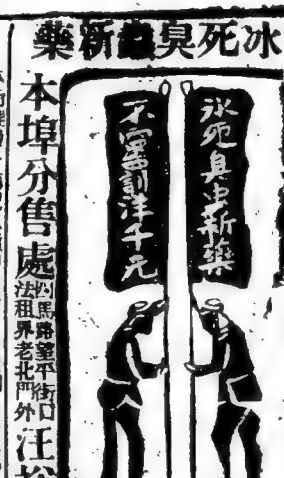 冰死臭蟲新藥
氷死臭虫新藥
不靈罰洋千元
本埠分售處
四馬路望平街口
法租界老北門外
汪